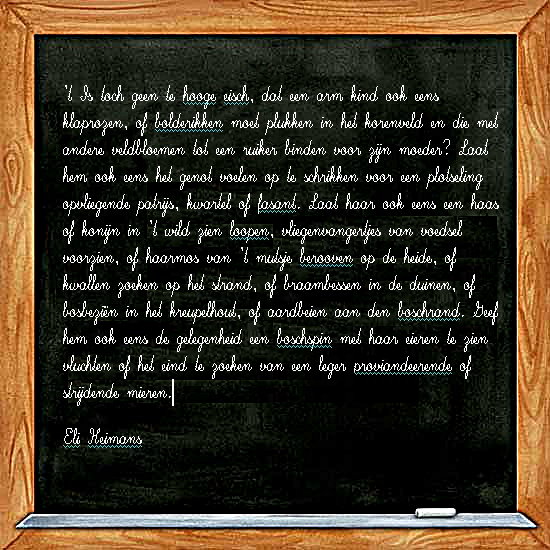 't Is toch geen te hooge eisch, dat een arm kind ook eens
klaprozen, of bolderikken moet plukken in het korenveld en die met
andere veldbloemen tot een ruiker binden voor zijn moeder? Laat
hem ook eens het genot voelen op te schrikken voor een plotseling
opvliegende patrijs, kwartel of fasant. Laat haar ook eens een haas
of konijn in 't wild zien loopen, vliegenvangertjes van voedsel
voorzien, of haarmos van 't mutsje berooven op de heide, of
kwallen zoeken op het strand, of braambessen in de duinen, of
bosbeziën in het kreupelhout, of aardbeien aan den boschrand. Geef
hem ook eens de gelegenheid een boschspin met haar eieren te zien
vluchten of het eind te zoeken van een leger proviandeerende of
strijdende mieren.
Eli Heimans